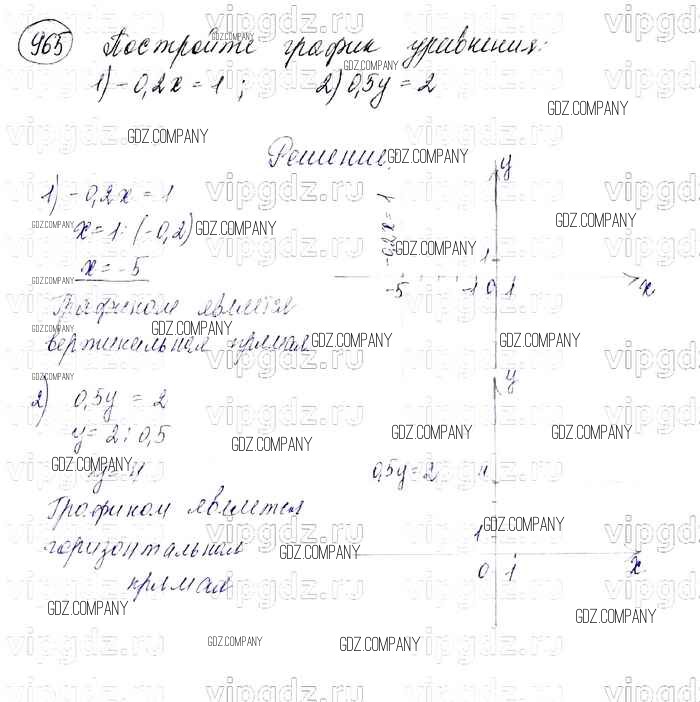 965 Постройте график уравнения:
1) -0,2x = 1; 2) 0,5y = 2
Решение.
1) -0,2x = 1
x = 1 : (-0,2)
x = -5
Графиком является
вертикальная прямая
-0,2x = 1
y
1
-5 -1 0 1 x
2) 0,5y = 2
y = 2 : 0,5
y = 4
Графиком является
горизонтальная
прямая
y
0,5y = 2 4
1
0 1 x
vipgdz.ru
GDZ.COMPANY